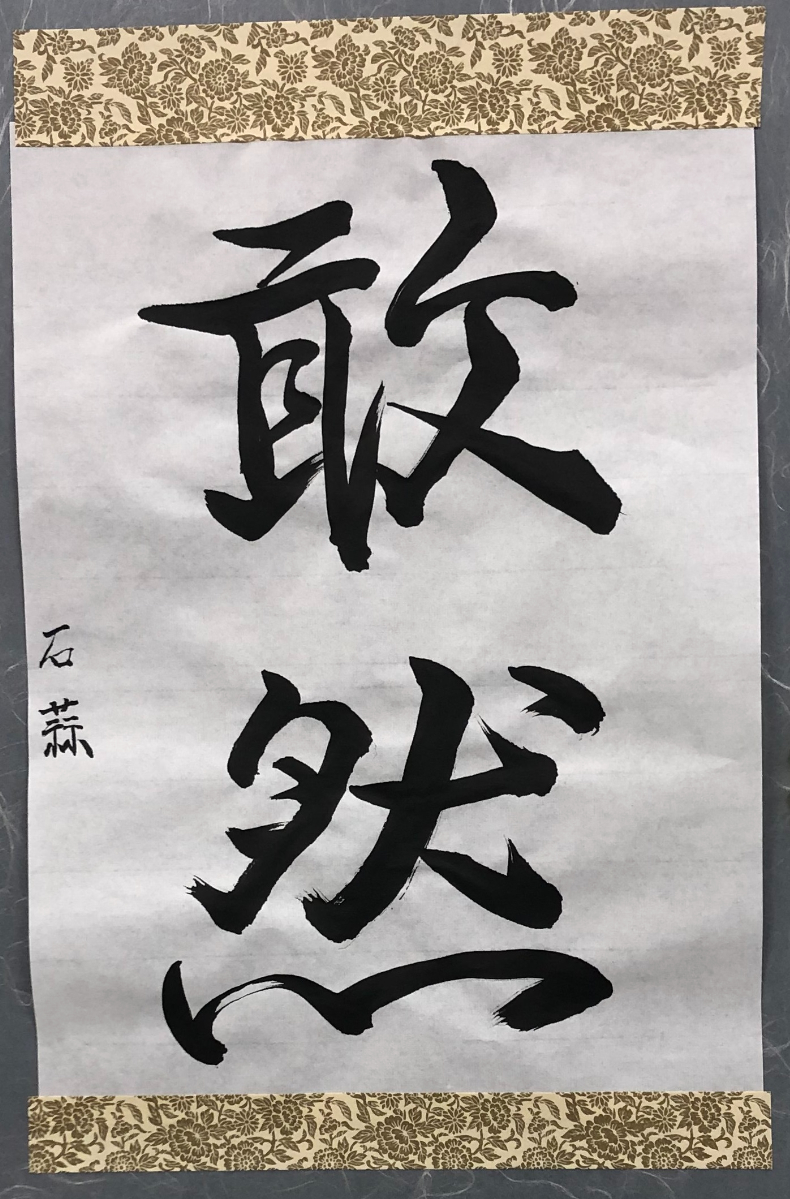 敢然
石蒜